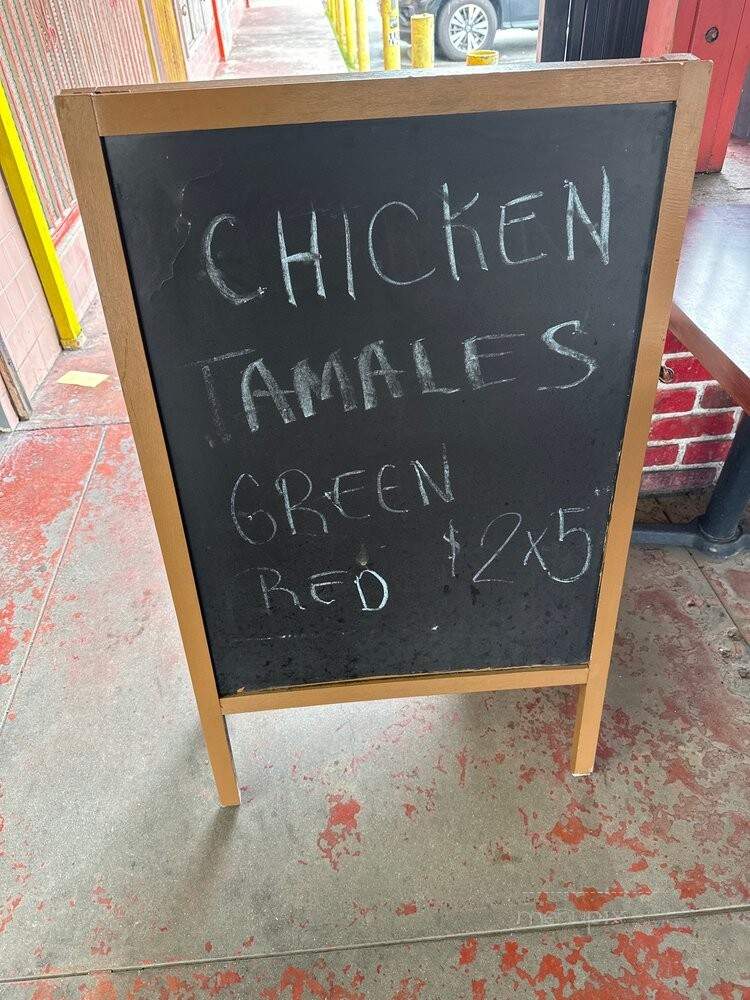 CHICKEN
TAMALES
GREEN
RED $2x5
menupix